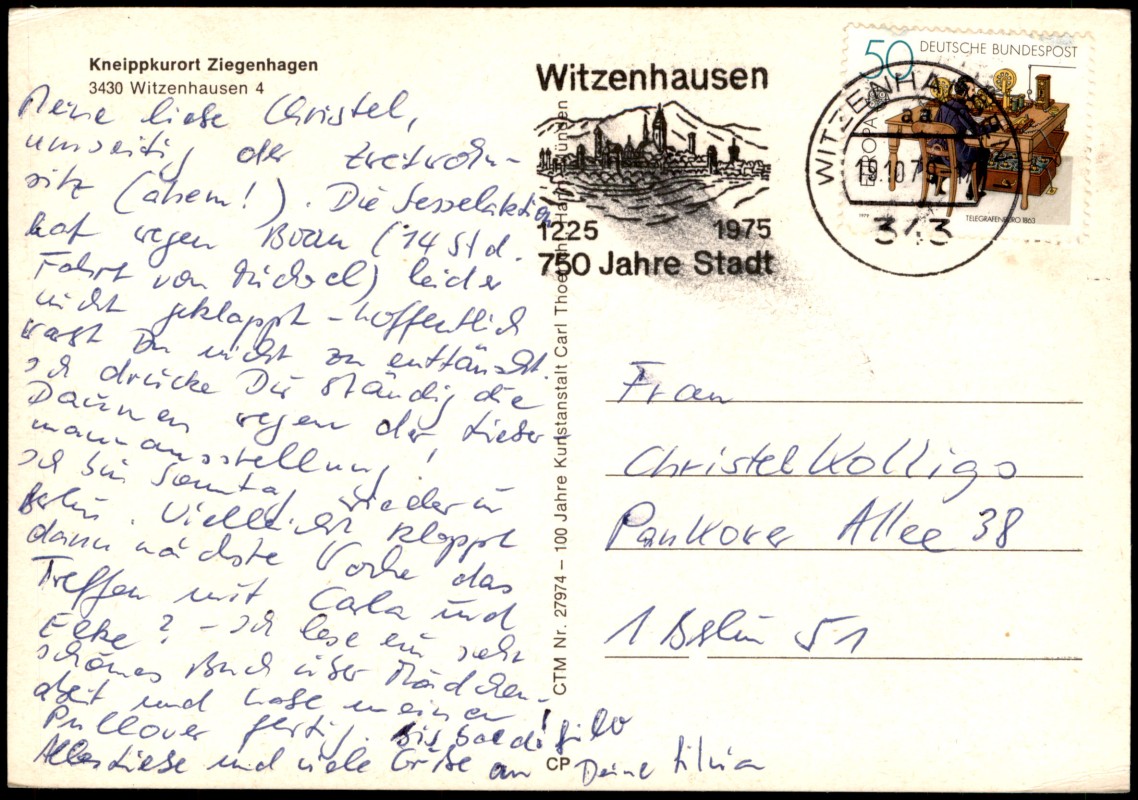 Kneippkurort Ziegenhagen
3430 Witzenhausen 4
Meine liebe Christel,
umseitig der Zweitwohn-
sitz (ahem!). Die Sesselaktion
hat wegen (14 Std.
Fahrt von Michael) leider
nicht geklappt – hoffentlich
warst Du nicht zu enttäuscht.
Ich drücke Dir ständig die
Daumen wegen der Lieber
mannausstellung!
Ich bin Sonntag wieder in
Berlin. Vielleicht klappt
dann nächste Woche das
Treffen mit Carla und
Elke? – Ich lese ein sehr
schönes Buch über Mädchen-
arbeit und habe meinen
Pullover fertig. Bis bald!
Alles Liebe und viele Grüße an Deine Silvia
CTM Nr. 27974 – 100 Jahre Kunstanstalt Carl Thoericht Hann. Münden
CP
Witzenhausen
1225 1975
750 Jahre Stadt
50 DEUTSCHE BUNDESPOST
EUROPA
1979
TELEGRAFENBÜRO 1863
WITZENHAUSEN 1
aa
19.10.79
343
Frau
Christel Kolligo
Pankower Allee 38
1 Berlin 51